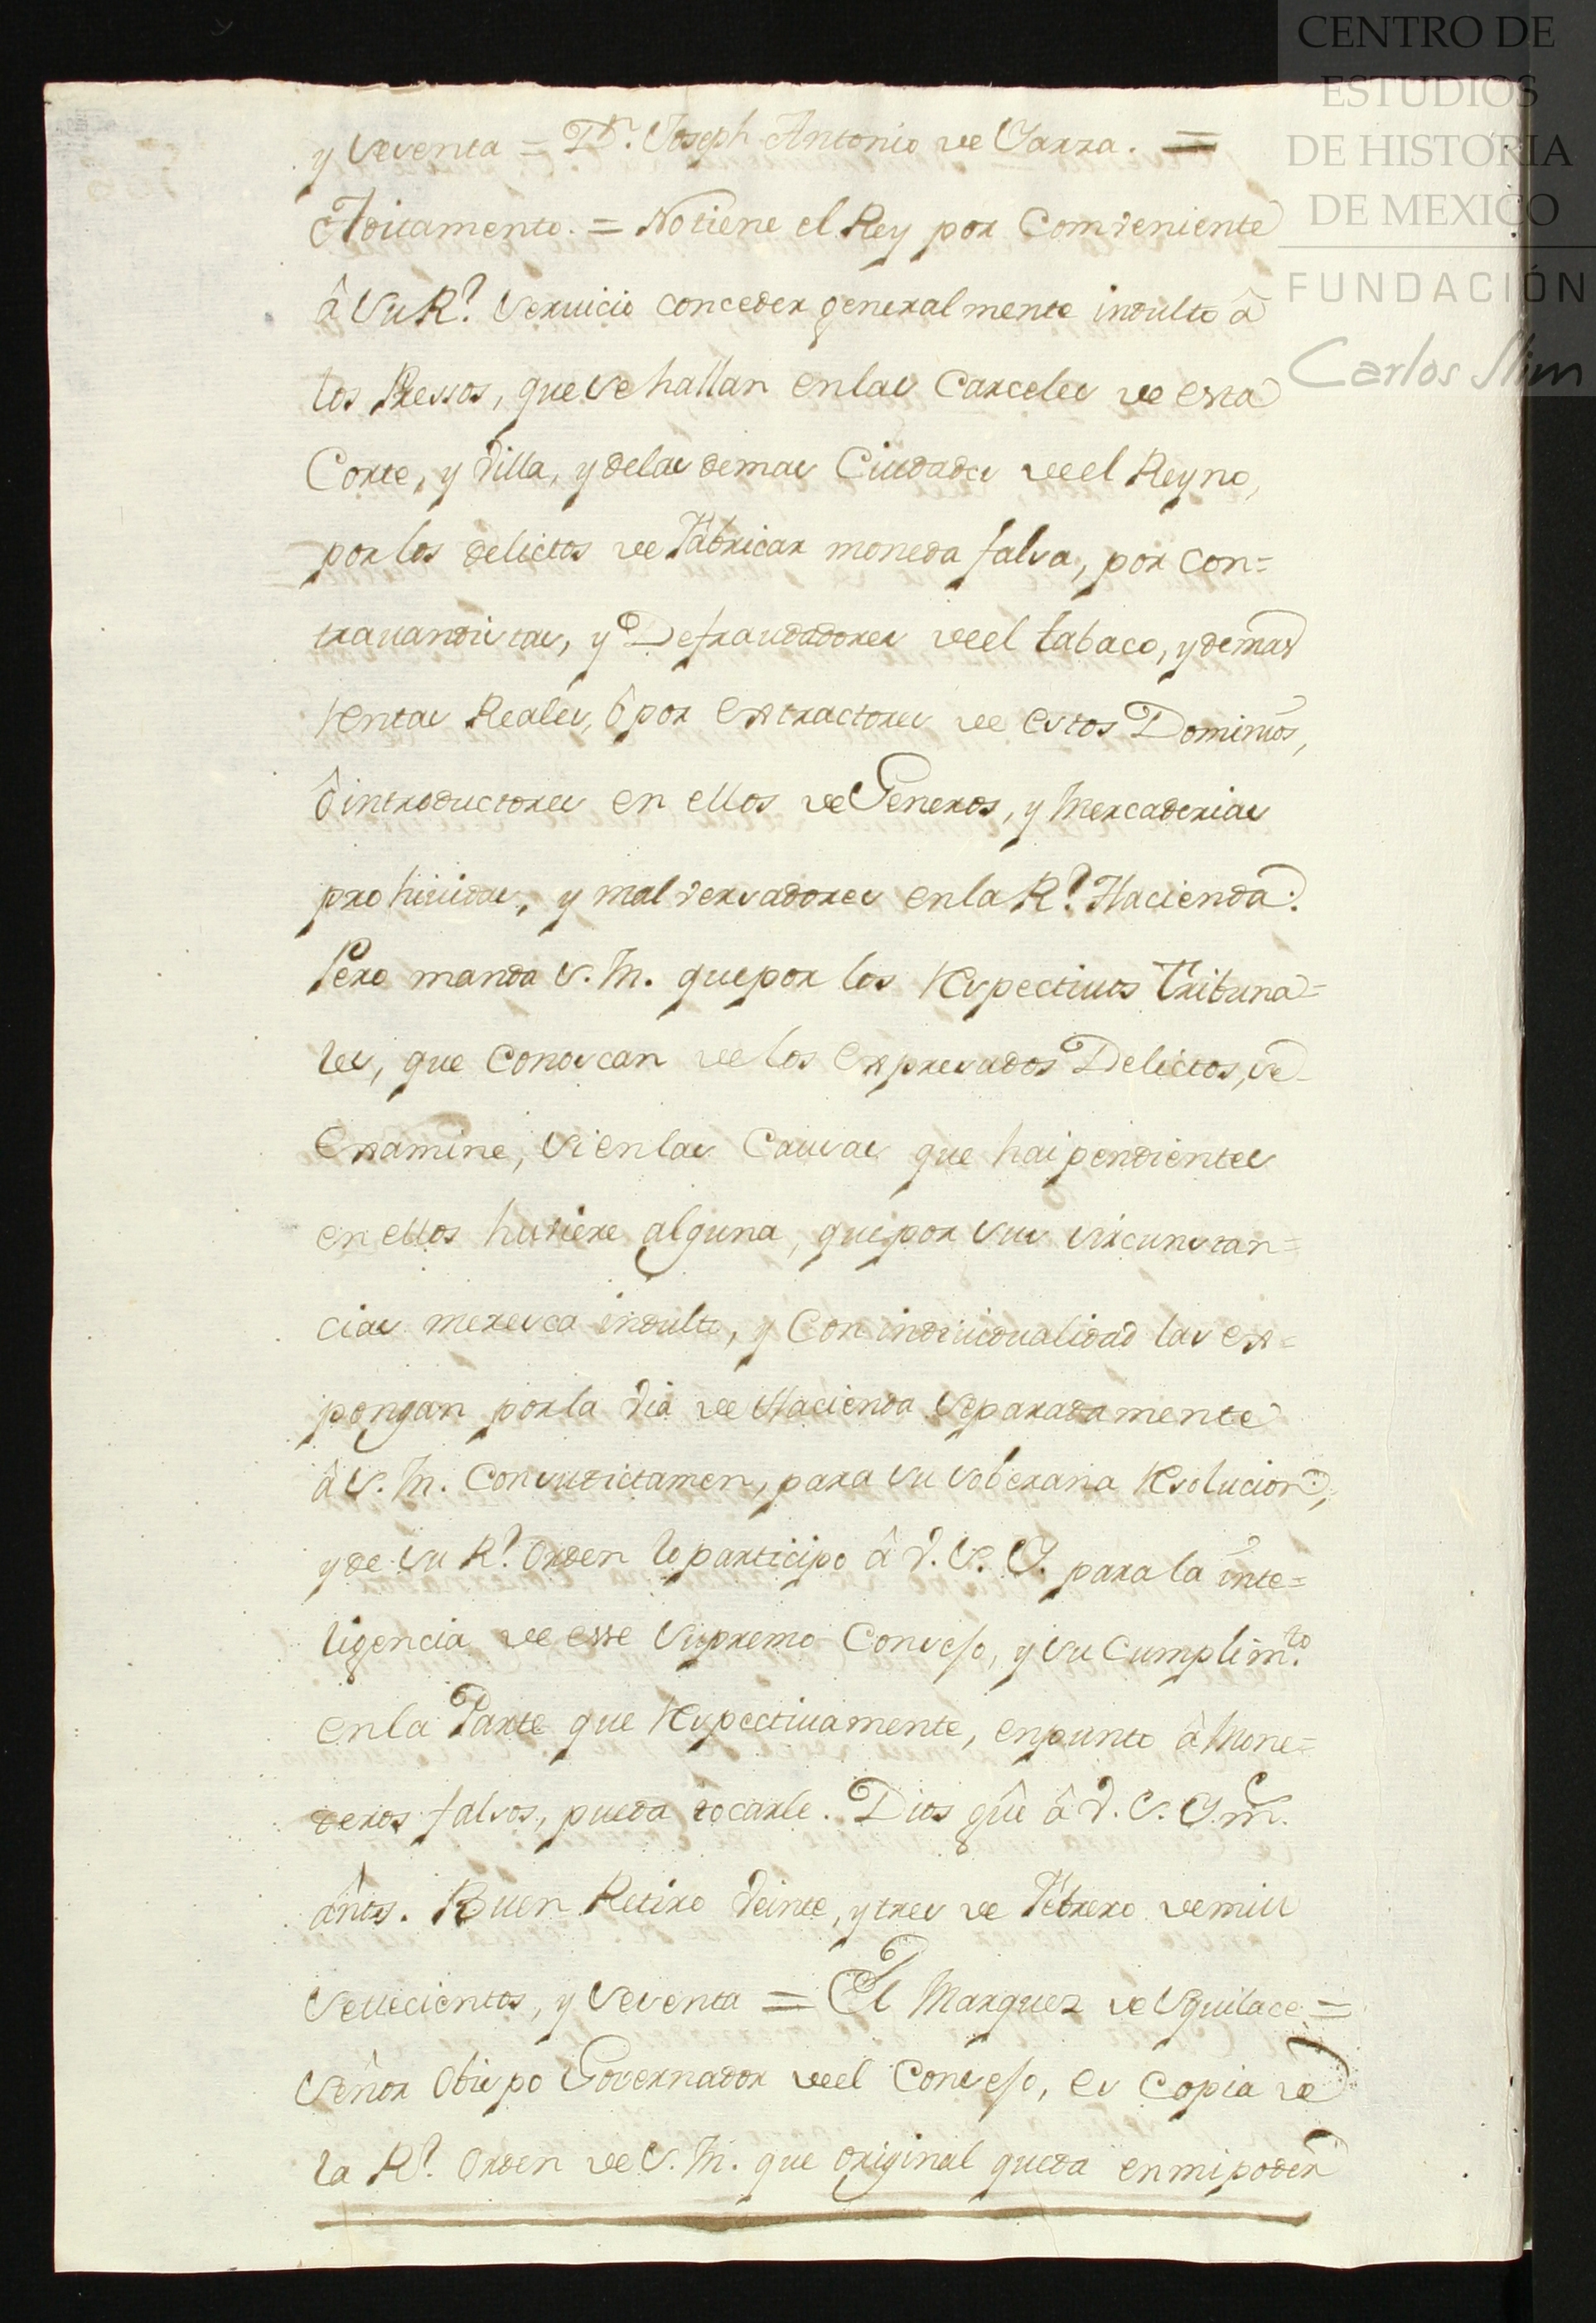 y sesenta = Dn. Joseph Antonio de Yarza. =
Aditamento. = No tiene el Rey por comveniente
â su Rl. servicio conceder generalmente indulto â
los Pressos, que se hallan en las Carceles de esta
Corte, y Villa, y de las demas Ciudades de el Reyno,
por los delictos de Fabricar moneda falsa, por con=
travandistas, y Defraudadores de el tabaco, y demas
rentas Reales, ô por extractores de estos Dominios,
ô introductores en ellos de Generos, y Mercaderias
prohividas, y malversadores en la Rl. Hacienda.
Pero manda S. M. que por los respectivos Tribuna=
les, que conoscan de los expresados Delictos, se
examine, si en las causas que hai pendientes
en ellos huviere alguna, que por sus circunstan=
cias meresca indulto, y con individualidad las ex=
pongan por la via de Hacienda separadamente
â S. M. con su dictamen, para su soberana resolucion,
y de su Rl. orden lo participo â V. S. Y. para la inte=
ligencia de esse supremo Consejo, y su cumplimto.
en la Parte que respectivamente, en punto â Mone=
deros falsos, pueda tocarle. Dios gûe â V. S. Y. ms.
âños. Buen Retiro veinte, y tres de Febrero de mil
settecientos, y sesenta = El Marques de Squilace =
Señor Obispo Governador de el Consejo, es copia de
la Rl. orden de S. M. que original queda en mi poder
CENTRO DE
ESTUDIOS
DE HISTORIA
DE MEXICO
FUNDACIÓN
Carlos Slim